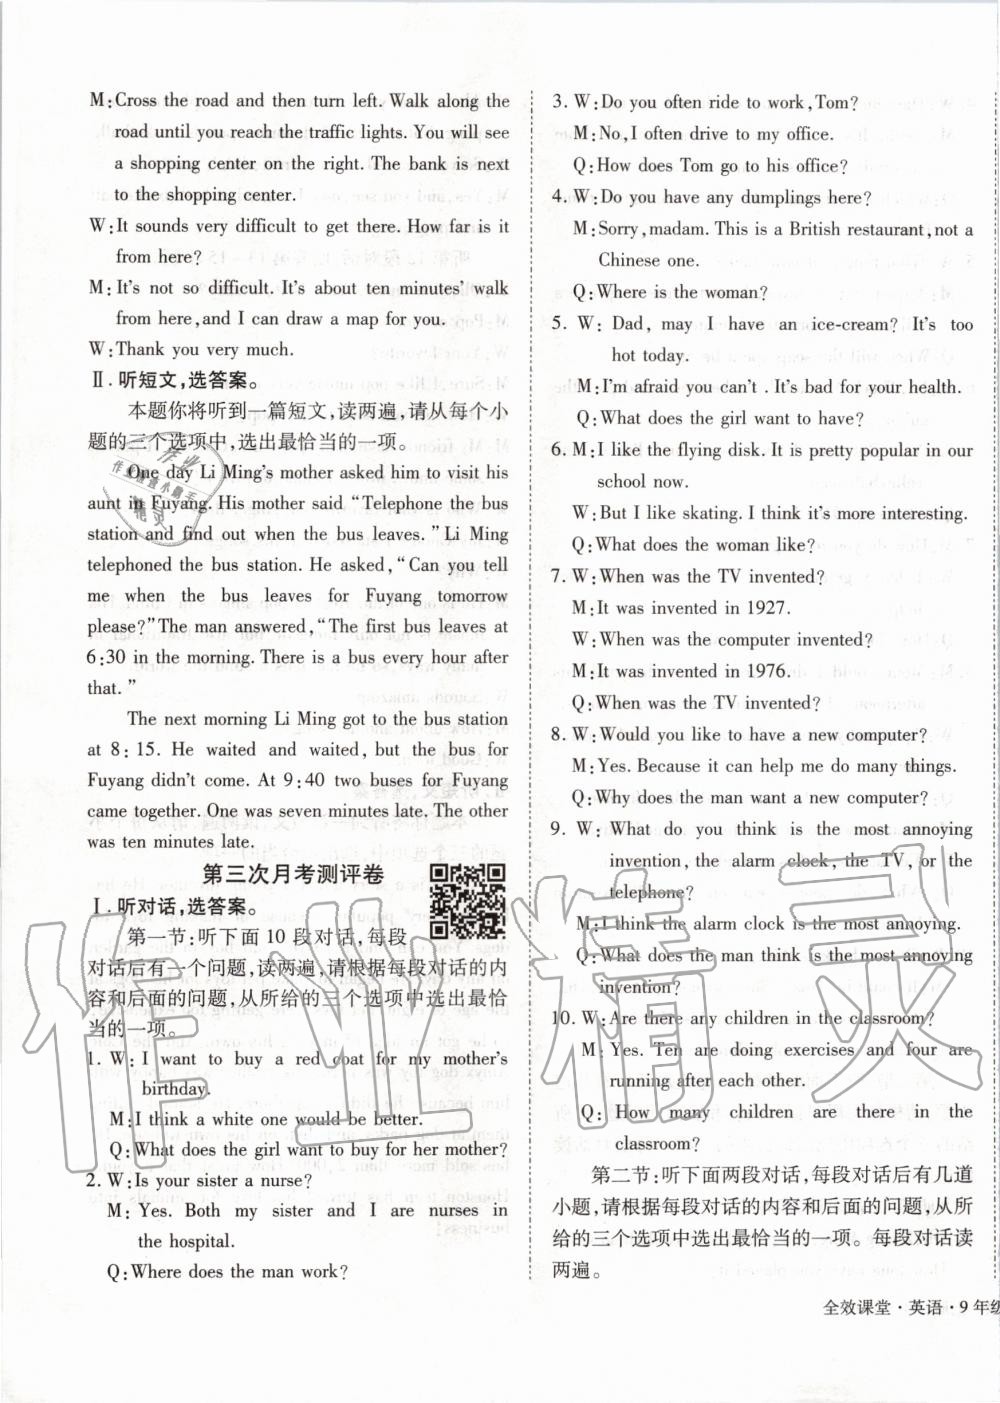 M:Cross the road and then turn left. Walk along the
road until you reach the traffic lights. You will see
a shopping center on the right. The bank is next
to the shopping center.
W:It sounds very difficult to get there. How far is it
from here?
M:It's not so difficult. It's about ten minutes' walk
from here,and I can draw a map for you.
W:Thank you very much.
Ⅱ. 听短文,选答案。
本题你将听到一篇短文,读两遍,请从每个小
题的三个选项中,选出最恰当的一项。
One day Li Ming's mother asked him to visit his
aunt in Fuyang. His mother said “Telephone the bus
station and find out when the bus leaves.”Li Ming
telephoned the bus station. He asked,“Can you tell
me when the bus leaves for Fuyang tomorrow
please?”The man answered,“The first bus leaves at
6:30 in the morning. There is a bus every hour after
that. ”
The next morning Li Ming got to the bus station
at 8: 15. He waited and waited, but the bus for
Fuyang didn't come. At 9:40 two buses for Fuyang
came together. One was seven minutes late. The other
was ten minutes late.
第三次月考测评卷
Ⅰ. 听对话,选答案。
第一节:听下面 10 段对话,每段
对话后有一个问题,读两遍,请根据每段对话的内
容和后面的问题,从所给的三个选项中选出最恰
当的一项。
1. W: I want to buy a red coat for my mother's
birthday.
M:I think a white one would be better.
Q:What does the girl want to buy for her mother?
2. W:Is your sister a nurse?
M: Yes. Both my sister and I are nurses in
the hospital.
Q:Where does the man work?
3. W:Do you often ride to work,Tom?
M:No,I often drive to my office.
Q:How does Tom go to his office?
4. W:Do you have any dumplings here?
M:Sorry,madam. This is a British restaurant,not a
Chinese one.
Q:Where is the woman?
5. W: Dad, may I have an ice-cream? It's too
hot today.
M:I'm afraid you can't . It's bad for your health.
Q:What does the girl want to have?
6. M:I like the flying disk. It is pretty popular in our
school now.
W:But I like skating. I think it's more interesting.
Q:What does the woman like?
7. W:When was the TV invented?
M:It was invented in 1927.
W:When was the computer invented?
M:It was invented in 1976.
Q:When was the TV invented?
8. W:Would you like to have a new computer?
M:Yes. Because it can help me do many things.
Q:Why does the man want a new computer?
9. W: What do you think is the most annoying
invention, the alarm clock, the TV, or the
telephone?
M:I think the alarm clock is the most annoying.
Q: What does the man think is the most annoying
invention?
10. W:Are there any children in the classroom?
M: Yes. Ten are doing exercises and four are
running after each other.
Q: How many children are there in the
classroom?
第二节:听下面两段对话,每段对话后有几道
小题,请根据每段对话的内容和后面的问题,从所
给的三个选项中选出最恰当的一项。每段对话读
两遍。
全效课堂·英语·9年级
作业精灵